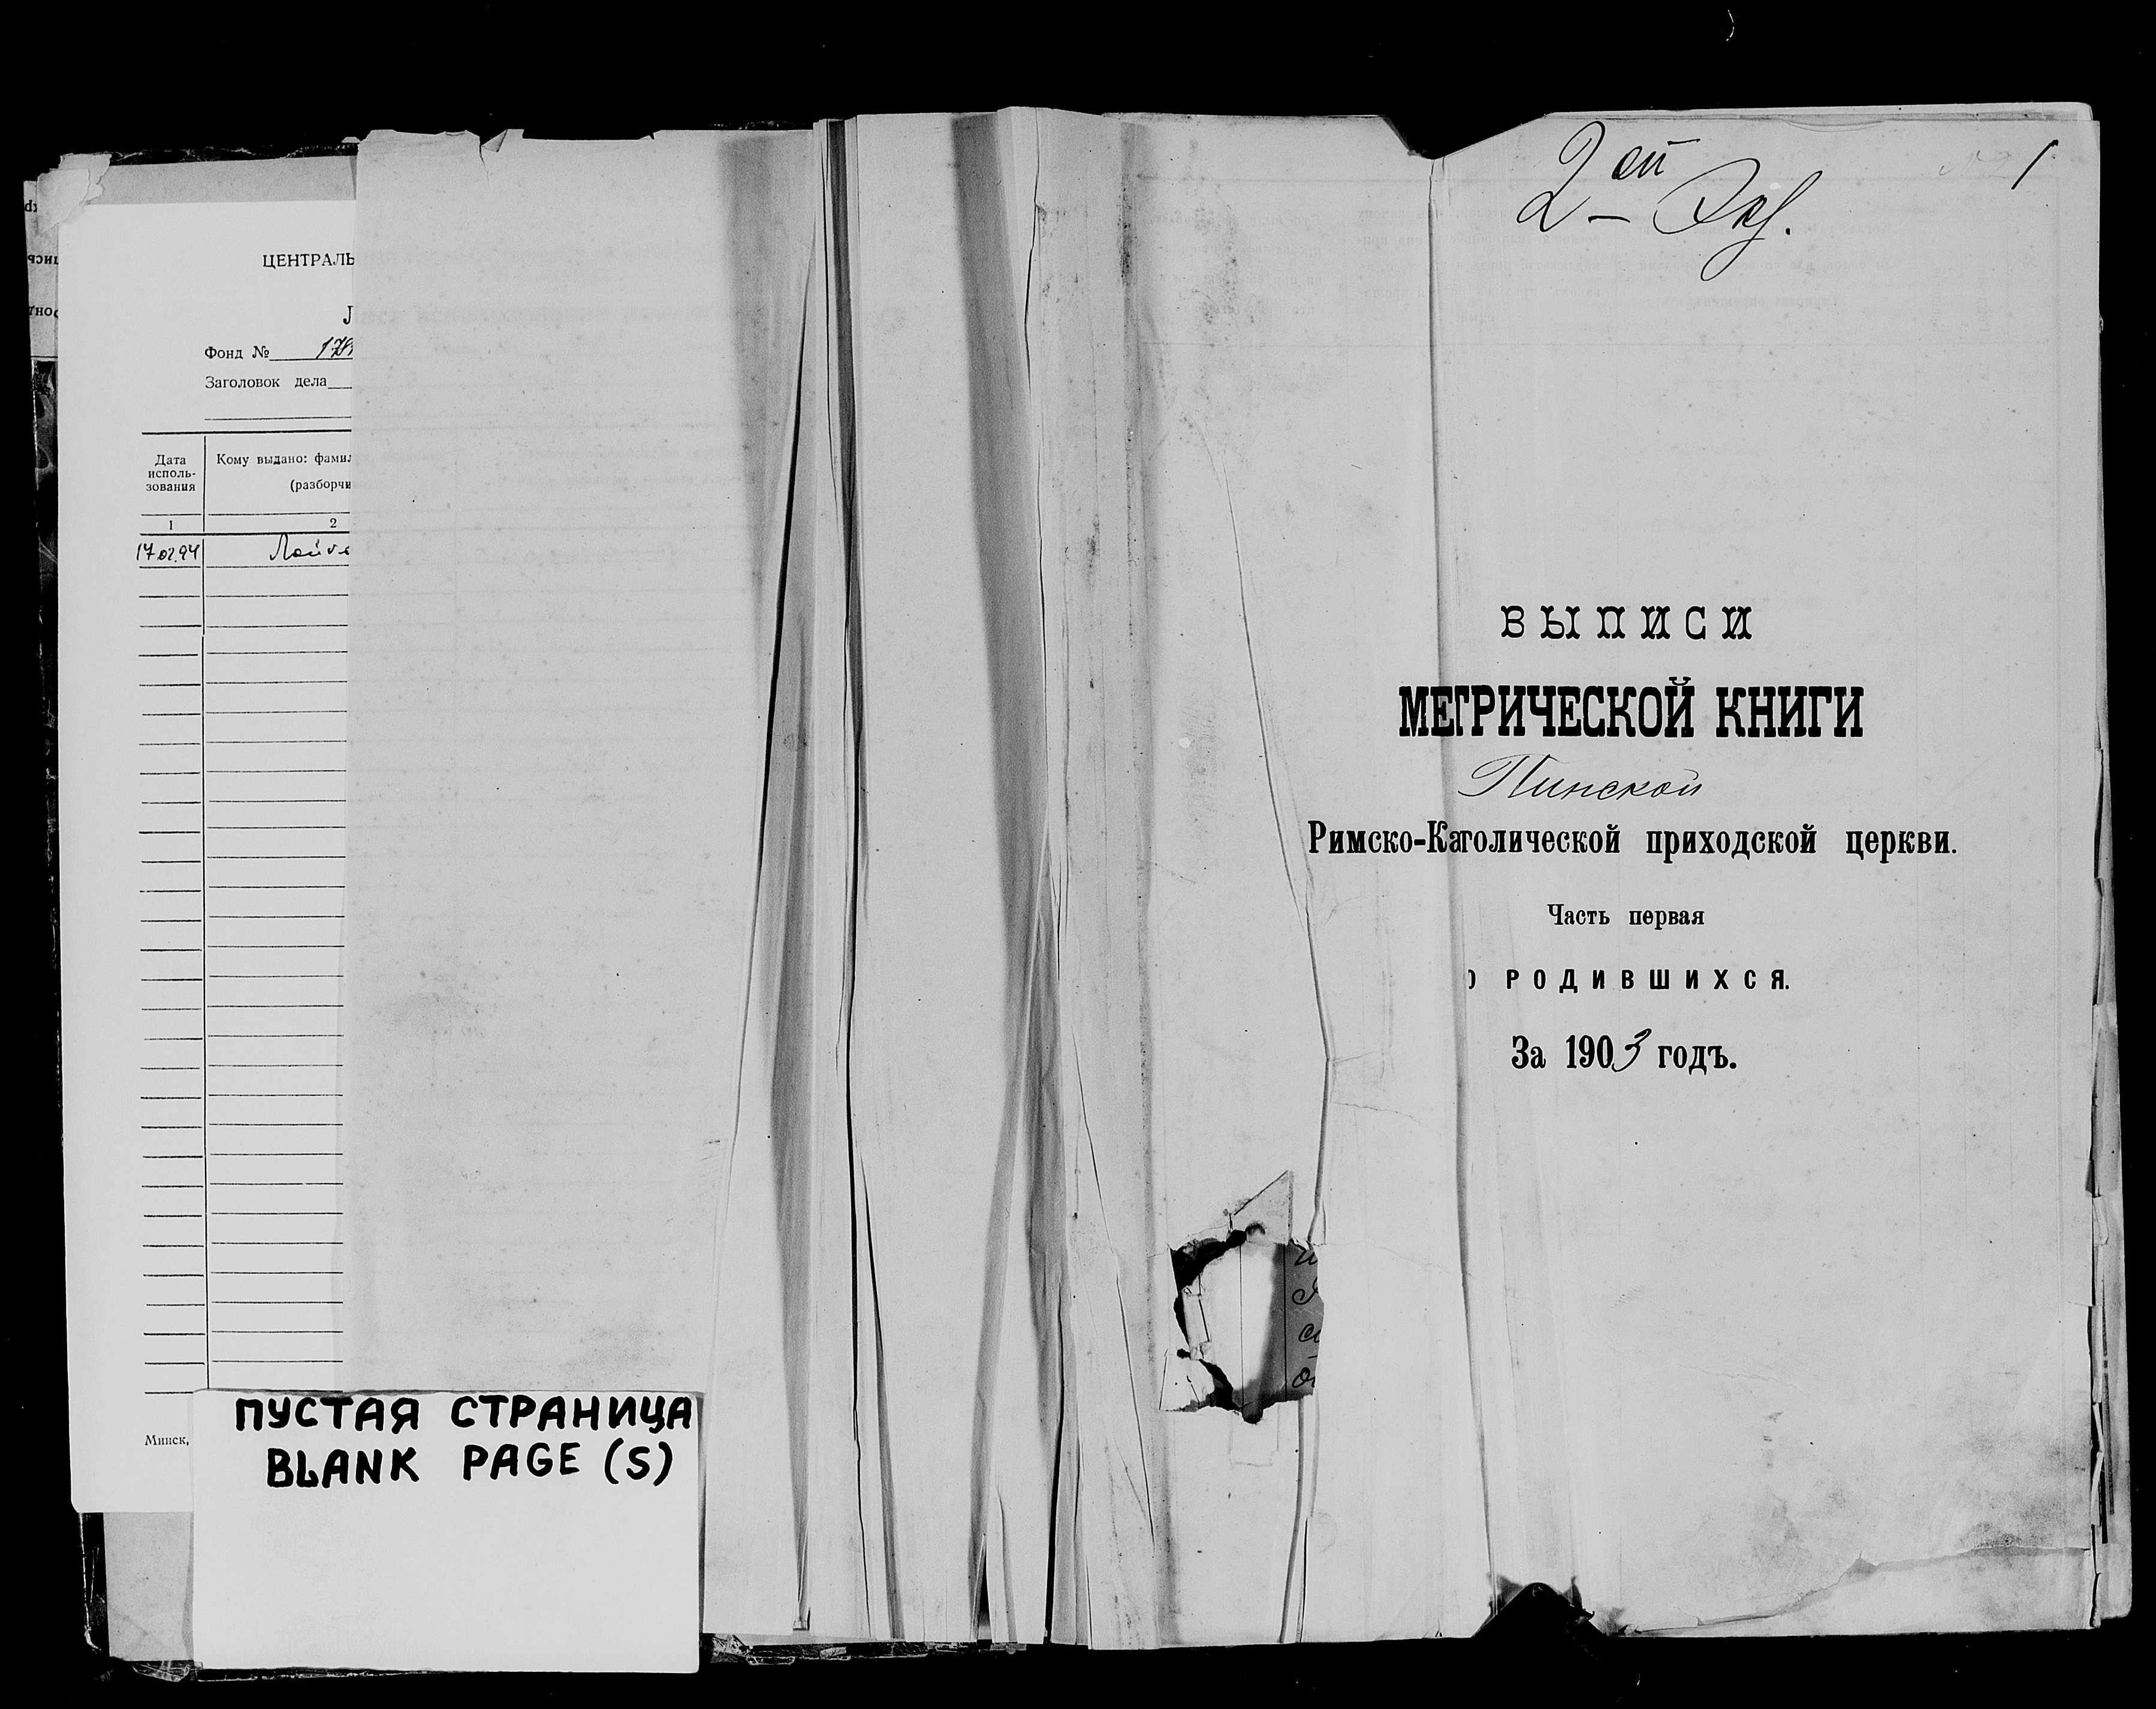 ЦЕНТРАЛЬ
Л
Фонд № 178
Заголовок дела
Дата исполь-
зования
Кому выдано: фамил
(разборчи
1
2
17.02.94
ПУСТАЯ СТРАНИЦА
BLANK PAGE (S)
Минск,
2ой Экз.
1
ВЫПИСИ
МЕТРИЧЕСКОЙ КНИГИ
Пинской
Римско-Католической приходской церкви.
Часть первая
О РОДИВШИХСЯ.
За 1903 годъ.